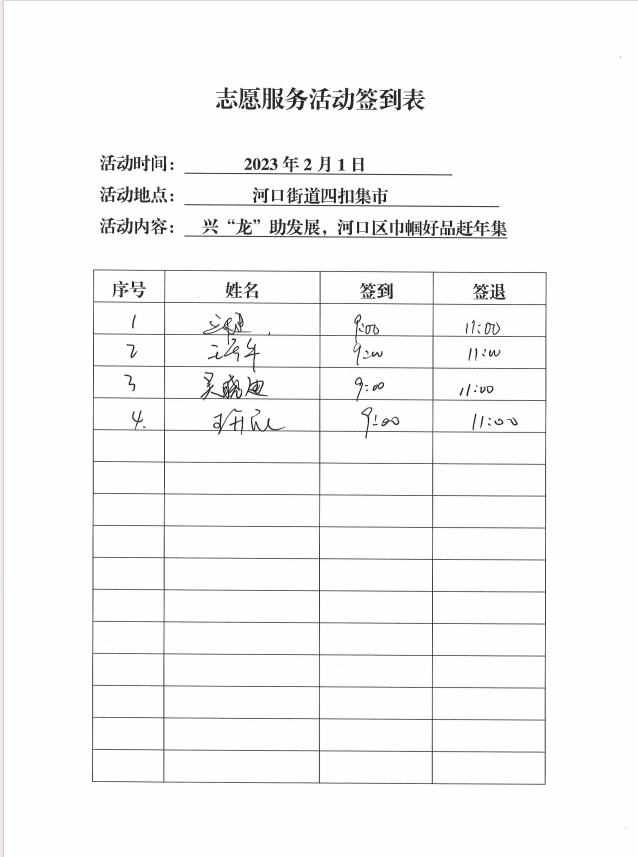 志愿服务活动签到表
活动时间: 2023 年 2 月 1 日
活动地点: 河口街道四扣集市
活动内容: 兴“龙”助发展，河口区巾帼好品赶年集
序号 姓名 签到 签退
1 9:00 11:00
2 9:00 11:00
3 吴晓迪 9:00 11:00
4. 9:00 11:00